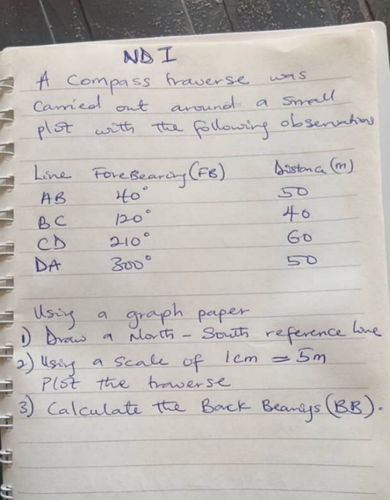 ND I
A Compass traverse was
Carried out around a small
plot with the following observations
Line Fore Bearing (FB) Distance (m)
AB 40° 50
BC 120° 40
CD 210° 60
DA 300° 50
Using a graph paper
1) Draw a North - South reference line
2) Using a scale of 1cm = 5m
Plot the traverse
3) Calculate the Back Bearings (BB).